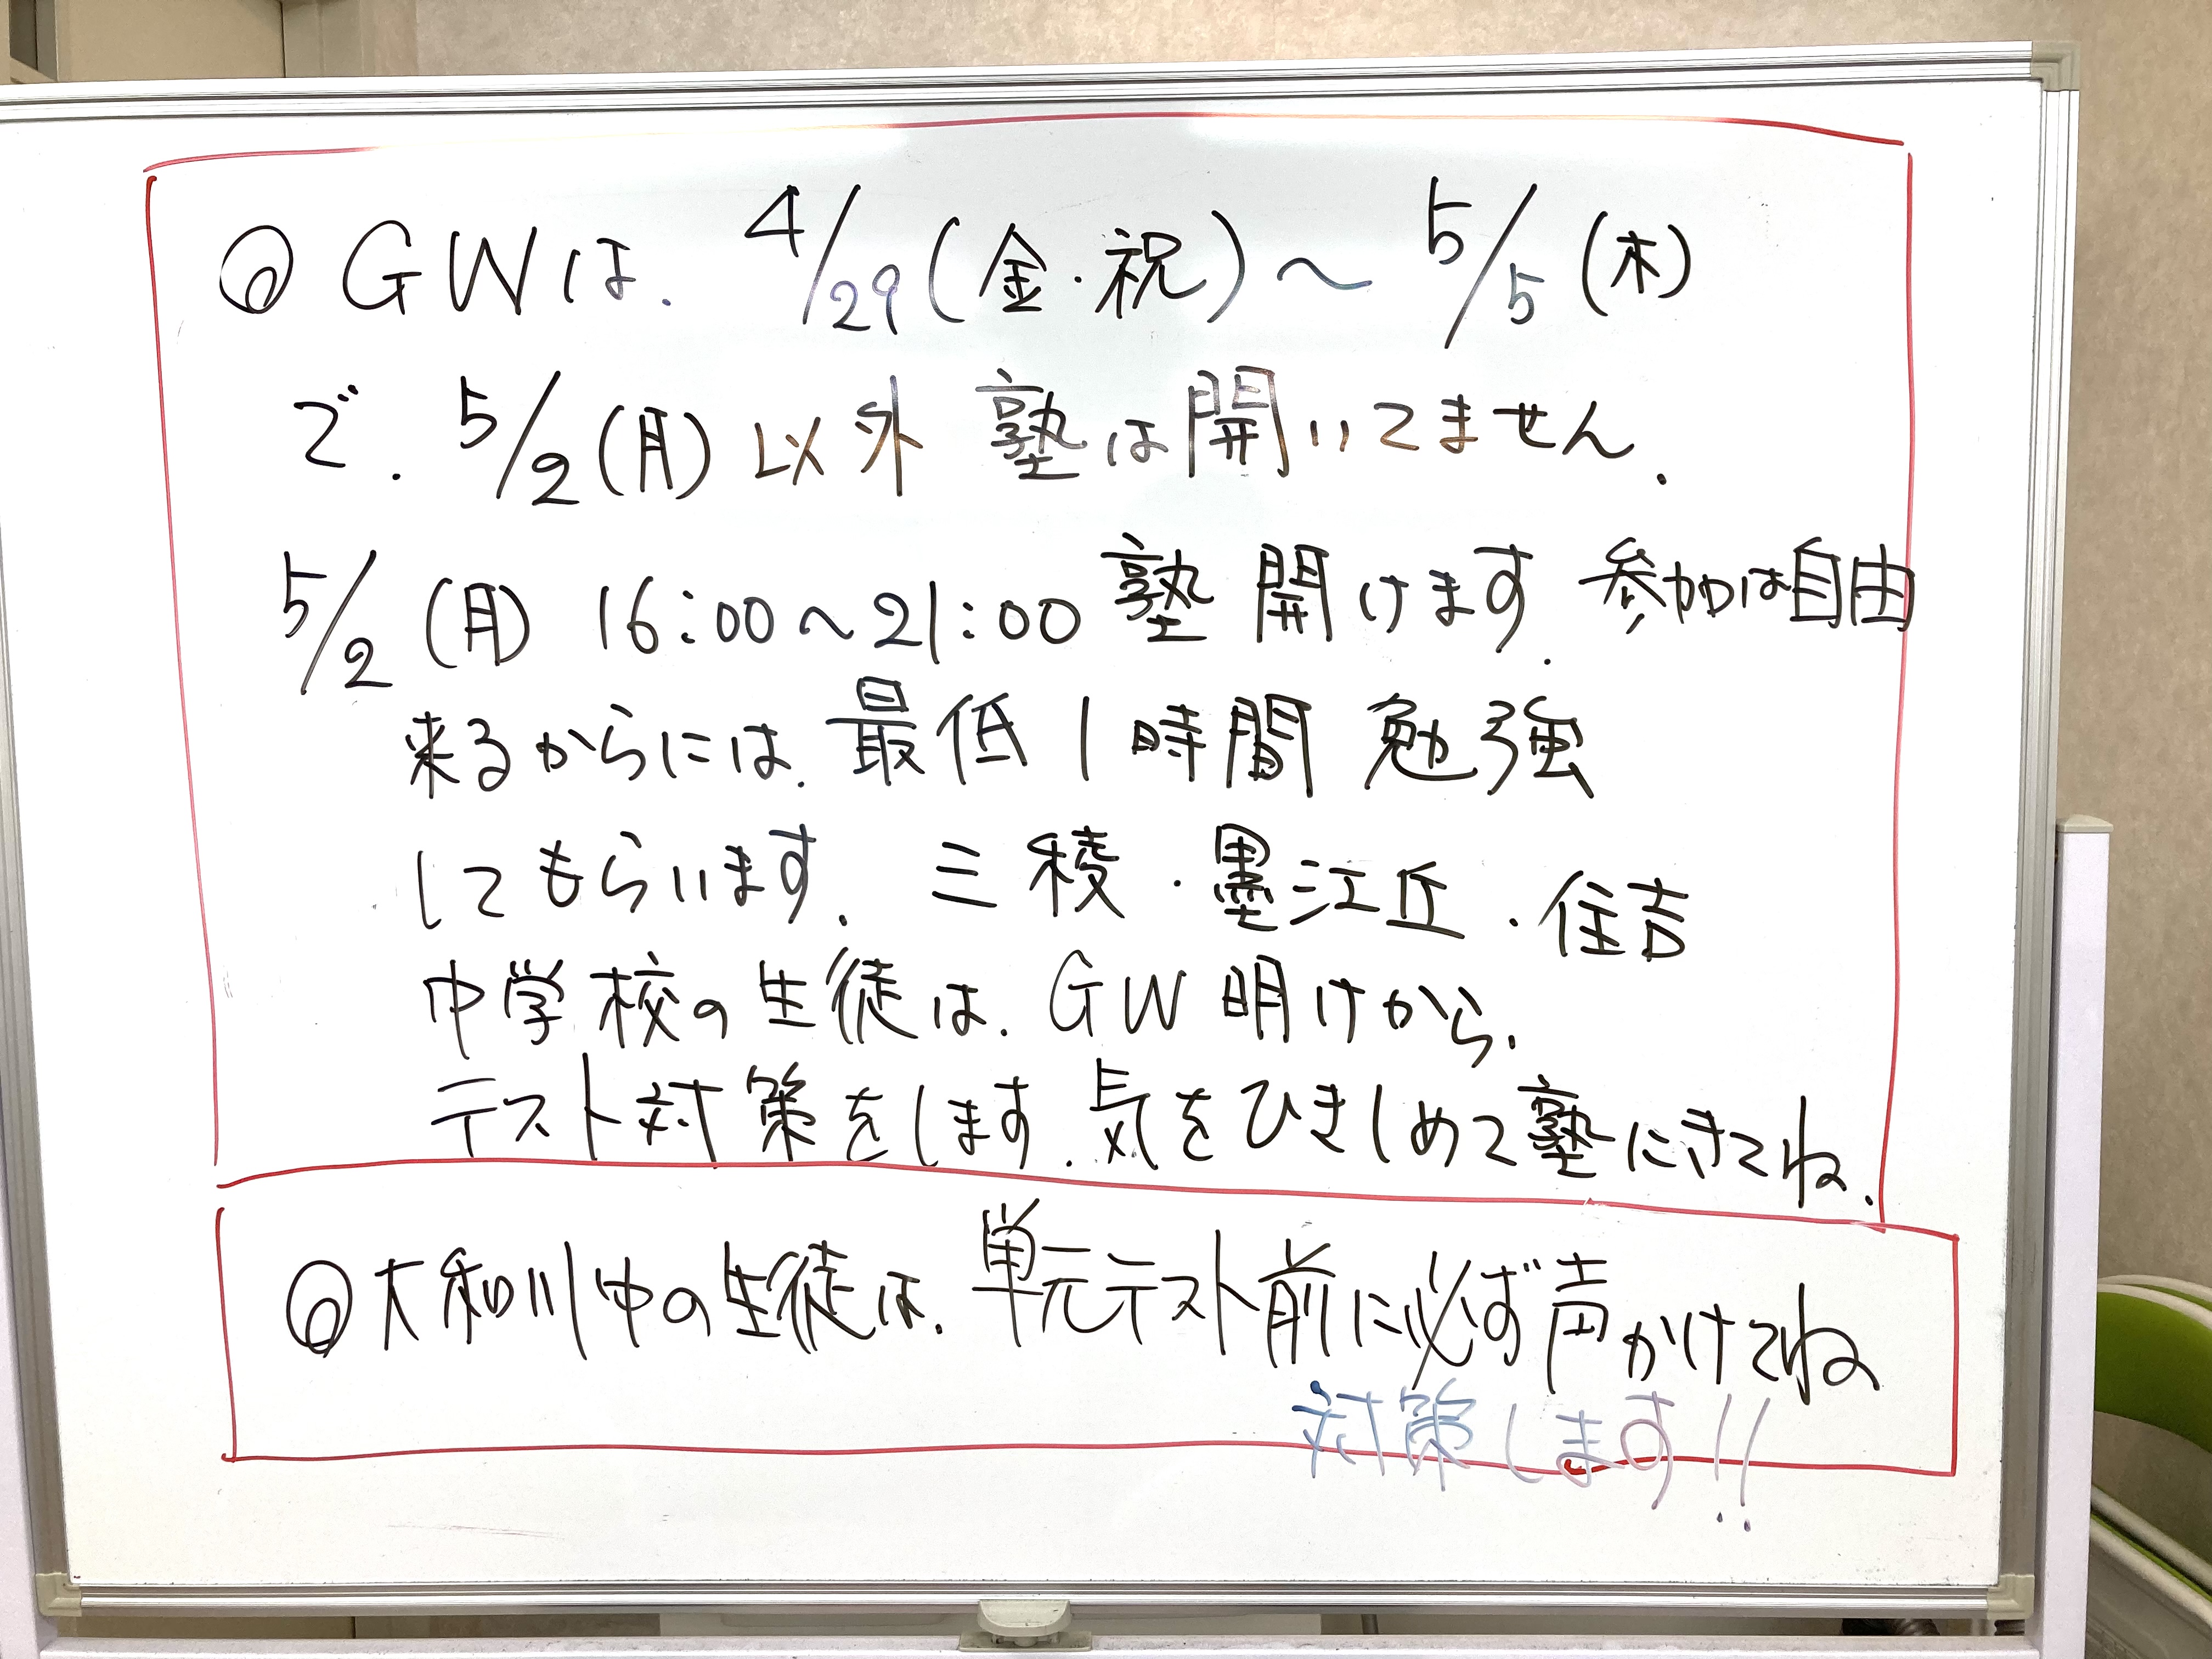 ◎ GWは、4/29(金・祝)～5/5(木)
で、5/2(月)以外 塾は開いてません。
5/2(月) 16:00～21:00 塾 開けます。参加は自由
来るからには、最低1時間 勉強
してもらいます。三稜・墨江丘・住吉
中学校の生徒は、GW明けから、
テスト対策をします。気をひきしめて塾にきてね。
◎大和川中の生徒は、単元テスト前に必ず声かけてね
対策します!!